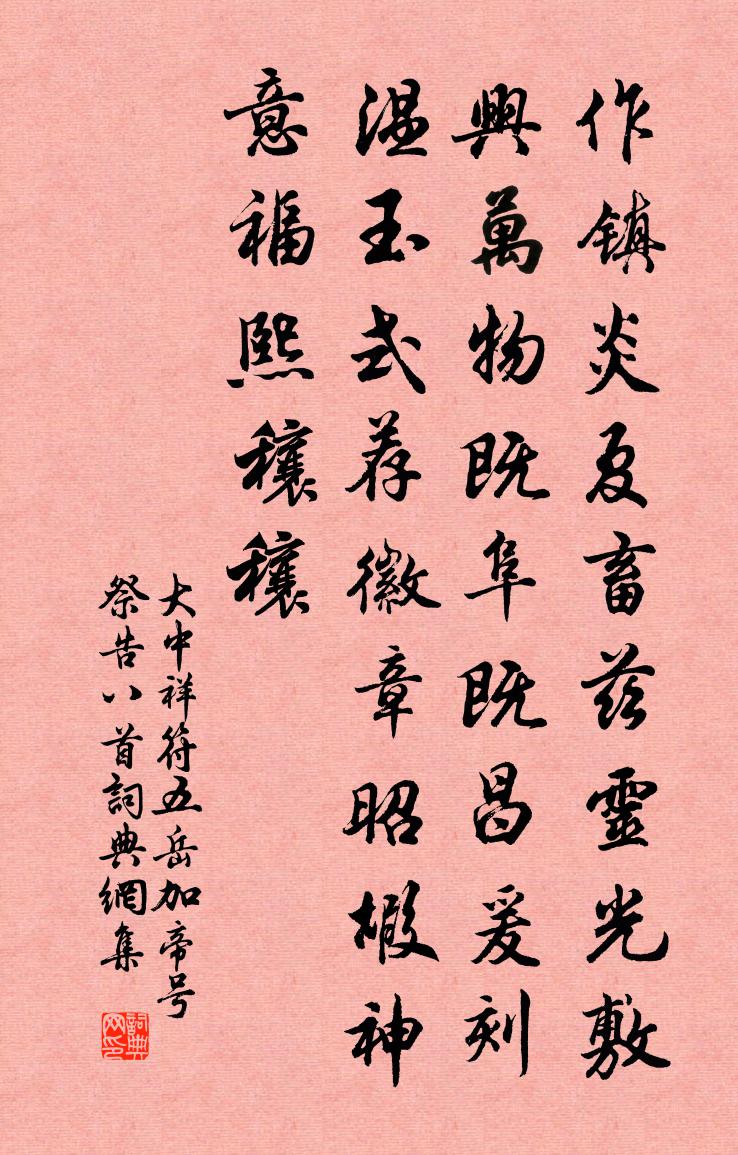 作镇炎夏畜兹靈光敷
興萬物既阜既昌爰刻
温玉式荐徽章昭椴神
意福熙穰穰
大中祥符五岳加帝号
祭告八首詞典網集
詞典网印